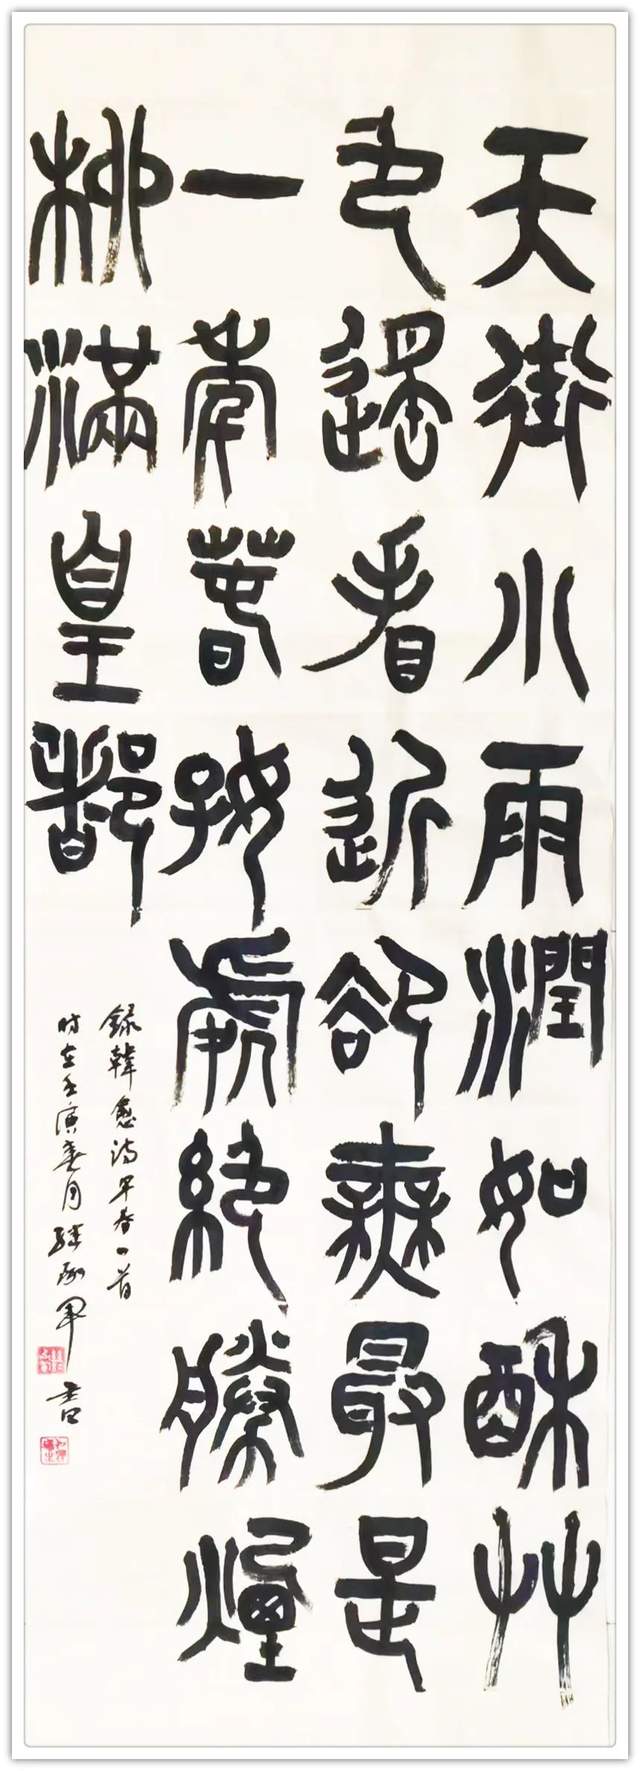 天街小雨潤如酥艸
色遙看近卻無最是
一年春好處絕勝煙
柳滿皇都
錄韓愈诗早春一首
时在壬寅春月 軍书